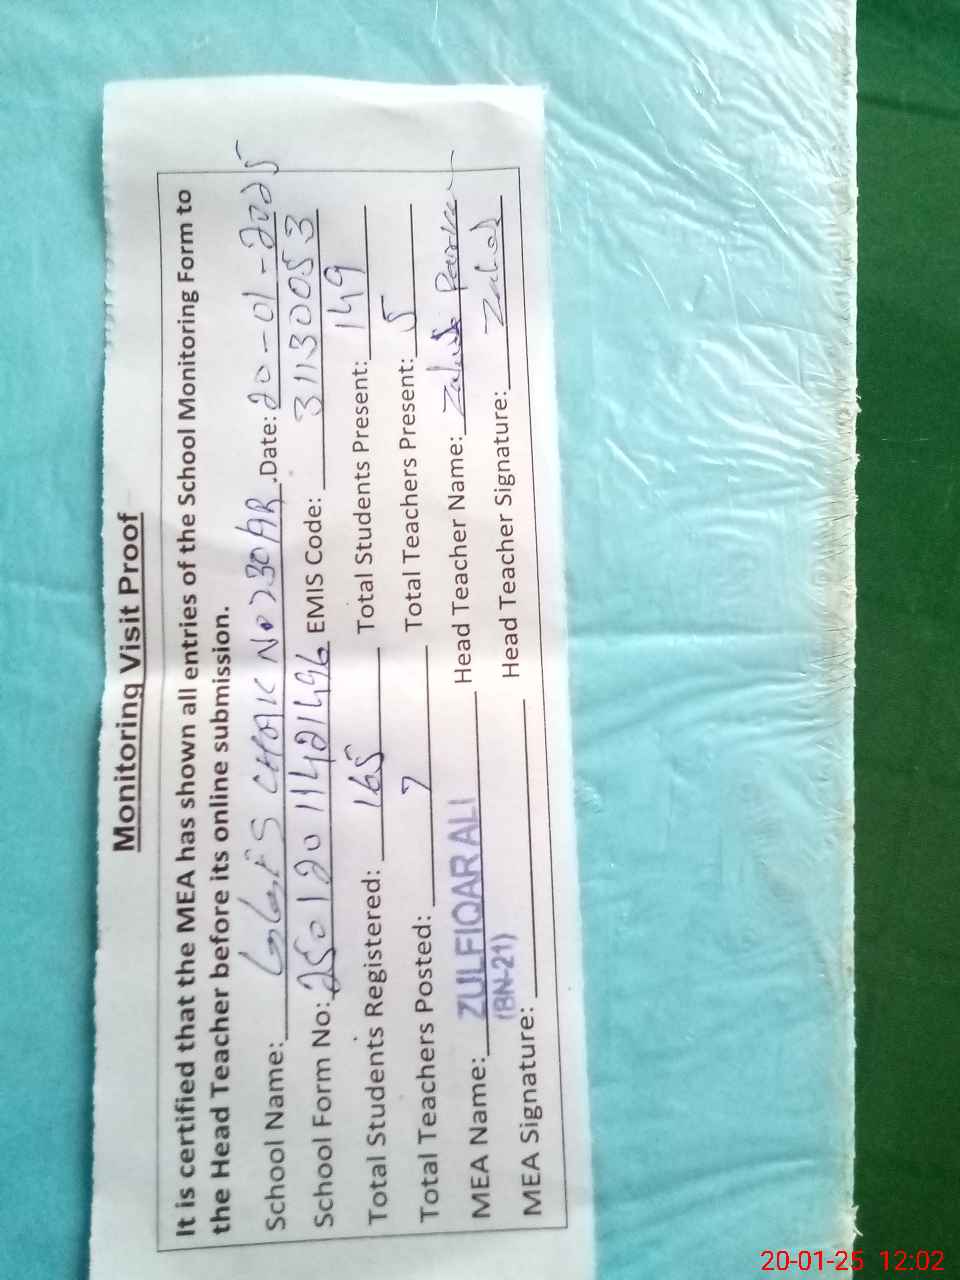 Monitoring Visit Proof
It is certified that the MEA has shown all entries of the School Monitoring Form to
the Head Teacher before its online submission.
School Name: GGES CHAK No 230 HR .Date: 20-01-2025
School Form No: 25012011421496 EMIS Code: 31130053
Total Students Registered: 165 Total Students Present: 149
Total Teachers Posted: 7 Total Teachers Present: 5
MEA Name: ZULFIQAR ALI Head Teacher Name: Zahida Parveen
(BN-21)
MEA Signature: Head Teacher Signature: Zahid
20-01-25 12:02